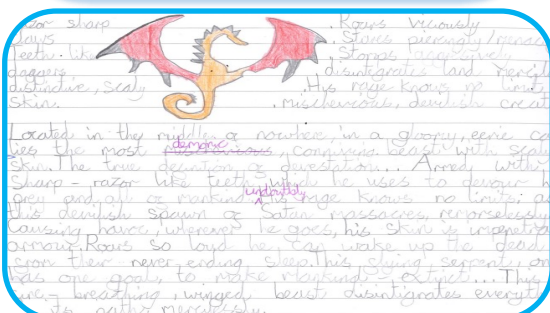 razor sharp
claws
teeth like
daggers
distinctive, scaly
skin.
. Roars viciously
. Stares piercingly/
. Stomps
. disintegrates land
. His rage knows no limit
. mischeveous, devilish creat
Located in the middle of nowhere, in a gloopy, eerie ca
lies the most demonic conniving beast with scaly
skin. The true definition of devestation... Armed with
Sharp - razor like teeth, which he uses to devour h
prey and all of man kind, undoubtly rage knows no limits as
this devilish spawn of Satan massacres remorselessly
Causing havoc, wherever he goes, his skin is
armour. Roars so loud he can wake up the dead
from their never ending sleep. This flying serpent, on
has one goal, to make mankind extinct... This
fire - breathing, winged beast disintigrates everyt
its paths mercilessly.